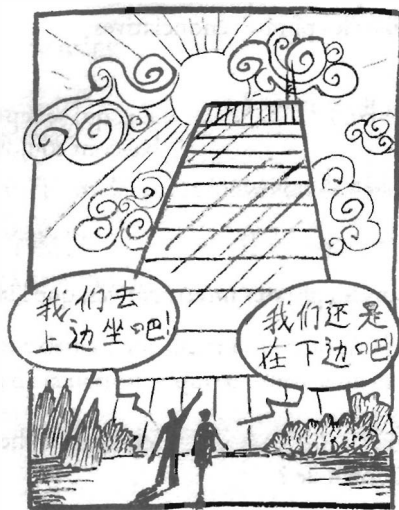 我们去
上边坐吧!
我们还是
在下边吧!